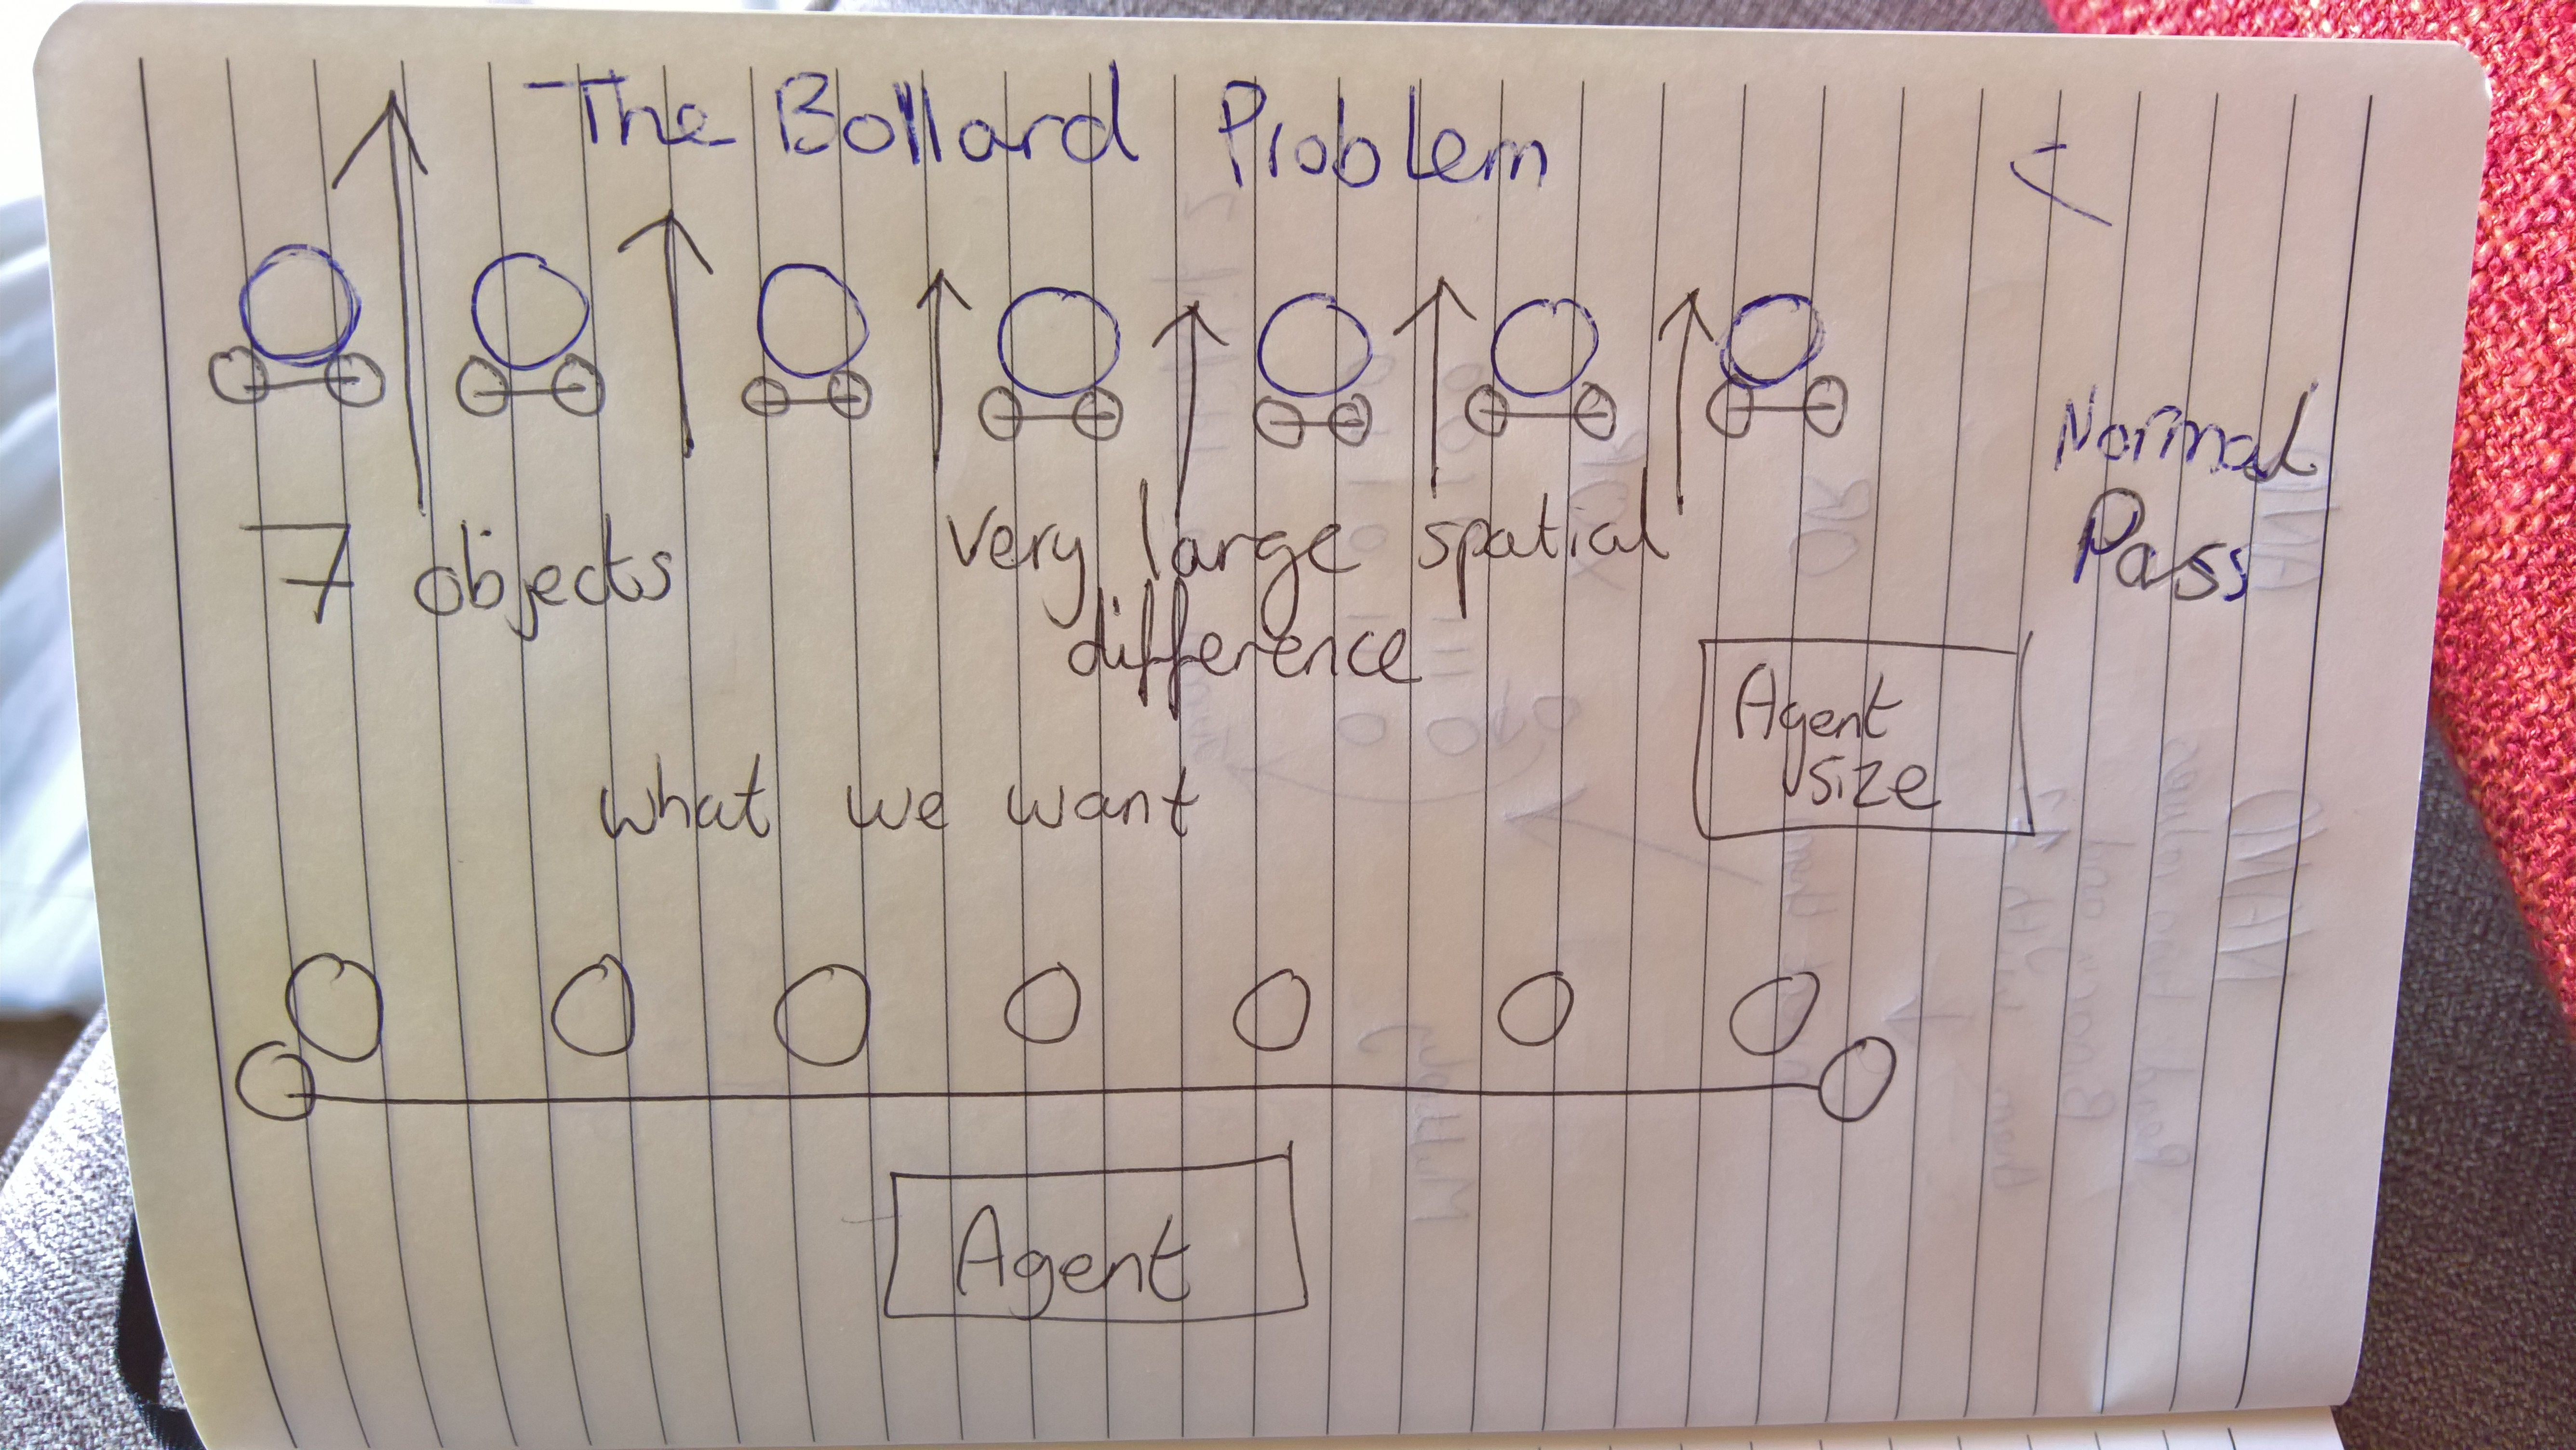 The Bollard Problem
Normal
Pass
7 objects
very large spatial
difference
Agent
size
what we want
Agent